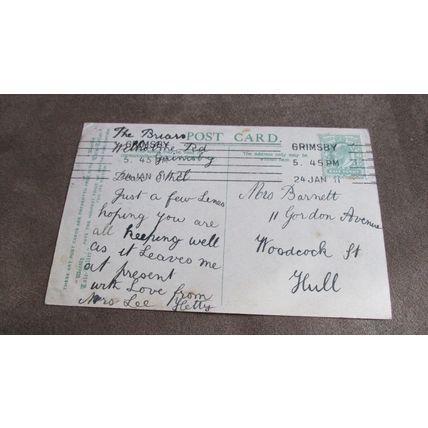 The Briars
POST CARD.
Welholme Rd
Grimsby
GRIMSBY
5. 45 PM
24 JAN 11
GRIMSBY
5. 45
JAN
The address only may be
Just a few Lines
hoping you are
all keeping well
as it Leaves me
at present
with Love from
Mrs Lee Hetty
Mrs Barnett
11 Gordon Avenue
Woodcock St
Hull